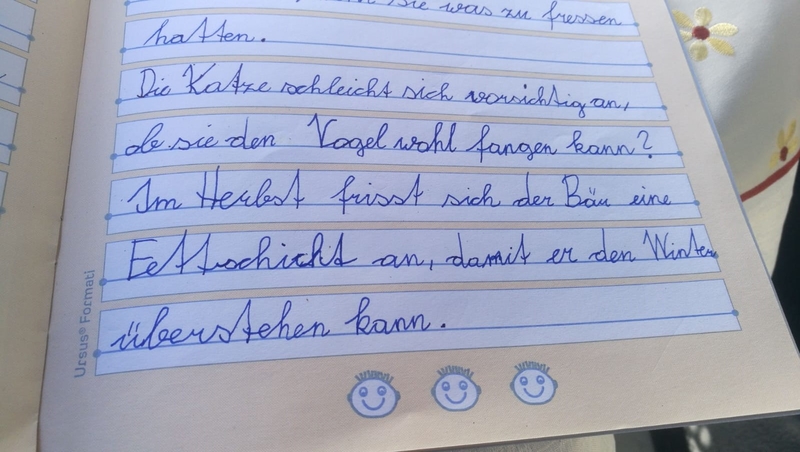 sie was zu fressen
hatten.
Die Katze schleicht sich vorsichtig an,
ob sie den Vogel wohl fangen kann?
Im Herbst frisst sich der Bär eine
Fettschicht an, damit er den Winter
überstehen kann.
Ursus® Format!